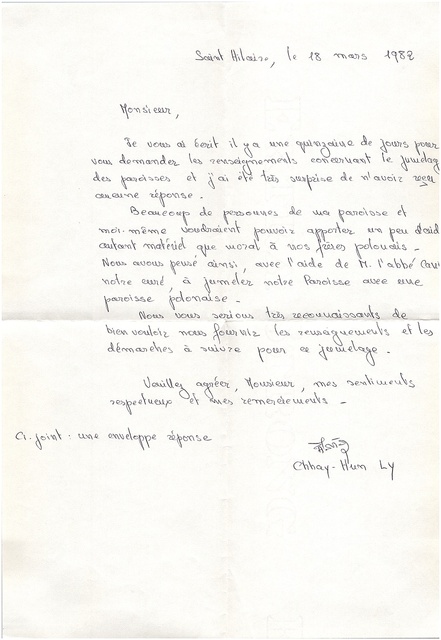 Saint Hilaire, le 18 mars 1982
Monsieur,
Je vous ai écrit il y a une quinzaine de jours pour
vous demander les renseignements concernant le jumelag
des paroisses et j'ai été très surprise de n'avoir reçu
aucune réponse.
Beaucoup de personnes de ma paroisse et
moi-même voudraient pouvoir apporter un peu d'aid
autant matériel que moral à nos frères polonais.
Nous avons pensé ainsi, avec l'aide de M. l'abbé
notre curé, à jumeler notre Paroisse avec une
paroisse polonaise.
Nous vous serions très reconnaissants de
bien vouloir nous fournir les renseignements et les
démarches à suivre pour ce jumelage.
Veuillez agréer, Monsieur, mes sentiments
respectueux et mes remerciements.
Ci. joint : une enveloppe réponse
Chhay-Hun Ly